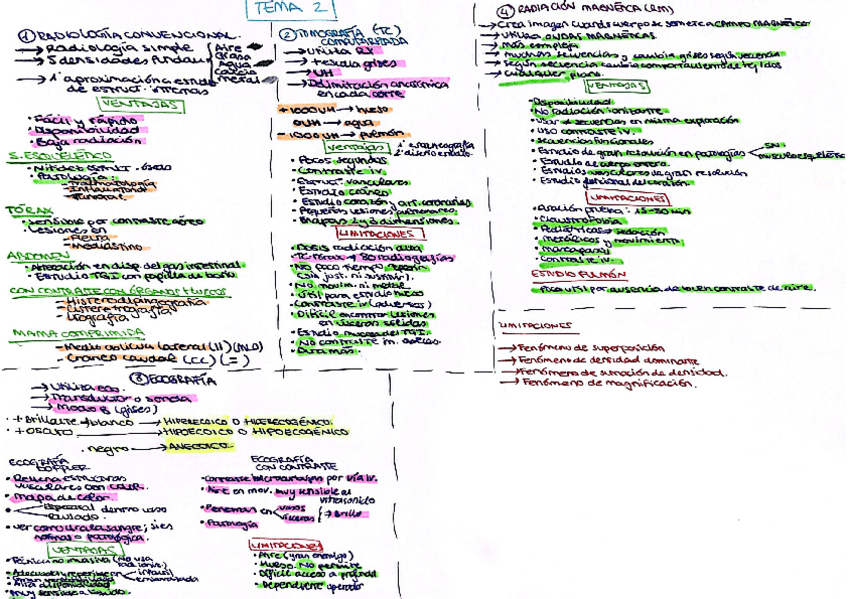 TEMA 2
① RADIOLOGÍA CONVENCIONAL.
→ Radiología simple
→ 5 densidades fundam
Aire
Grasa
Agua
Calcio
Metal
→ 1ª aproximación estudio
de estruct. internas
VENTAJAS
• Fácil y rápido
• Disponibilidad
• Baja radiación
S. ESQUELÉTICO
• Patología:
- Traumatología
- Tumoral.
TÓRAX
• Sensible por contraste aéreo
• Lesiones en
- Pleura
- Mediastino
ABDOMEN
• Alteración en disp. del gas intestinal.
• Estudio TGI con papilla de bario.
CON CONTRASTE CON ÓRGANOS HUECOS
- Histerosalpingografía
- Cisterografía
- Urografía
MAMA COMPRIMIDA
- Medio oblicua lateral (//) (MLO)
- Craneo caudal (CC) (=)
② TOMOGRAFÍA (TC)
COMPUTARIZADA
→ Utiliza RX
→ + escala grises
→ UH
→ Delimitación anatómica
en cada corte
+1000 UH → hueso
0UH → agua
-1000 UH → pulmón
Ventajas
• Pocos segundos
• Contraste iv.
• Estruct. vasculares
• Estudio corazón y art. coronarias
• Pequeñas lesiones pulmonares.
• Imágenes 2 y 3 dimensiones.
LIMITACIONES
• Dosis radiación alta
• TC-tórax → 80 radiografías
• No poco tiempo repetir
(sin just. ni sustituir).
• No movim. ni metal
• Contraste iv (adversos)
• Difícil encontrar lesiones
en vísceras sólidas
• Estudio mucosa del TGI.
• Dura más.
④ RADIACIÓN MAGNÉTICA (RM)
→ Crea imagen cuando cuerpo se somete a CAMPO MAGNÉTICO
→ Utiliza ONDAS MAGNÉTICAS
→ Más compleja
→ Muchas secuencias y cambia grises según secuencia
→ Según secuencia cambia comportamiento de tejidos
→ Cualquier plano.
VENTAJAS
• Disponibilidad
• No radiación ionizante
• Usar + secuencias en misma exploración
• Uso contraste iv.
• Secuencias funcionales
• Estudio de gran resolución en patologías
SN
musculoesquelético
• Estudio de cuerpo entero.
• Estudios vasculares de gran resolución
• Estudio funcional del corazón.
LIMITACIONES
• Duración prueba: 15-30 min
• Claustrofobia
• Pediátricos → sedación
• Metálicos y movimiento
• Marcapasos
• Contraste iv.
ESTUDIO PULMÓN
• Poco útil por ausencia de
LIMITACIONES
→ Fenómeno de superposición
→ Fenómeno de densidad dominante
→ Fenómeno de sumación de densidad.
→ Fenómeno de magnificación.
③ ECOGRAFÍA
→ Utiliza eco.
→ Transductor o sonda
→ Modo B (grises)
• + Brillante → blanco → HIPERECOICO O HIPERECOGÉNICO.
• + oscuro → HIPOECOICO O HIPOECOGÉNICO
• negro → ANECOICO.
ECOGRAFÍA
DOPPLER
• Rellena estructuras
vasculares con color.
• Mapa de color.
Espectral dentro vaso
Pulsado.
• Ver cómo circula sangre; si es
normal o patológica.
VENTAJAS
• Técnica no invasiva (No usa
• Alta disponibilidad
• Muy sensible a líquido.
ECOGRAFÍA
CON CONTRASTE
• Contraste microburbujas por vía iv.
• Aire en mov. muy sensible al
ultrasonido
• Penetran en vasos
vísceras → + brillo
• Patología
LIMITACIONES
• Aire (gran enemigo)
• Hueso. No permite
• Difícil acceso a profund
• Dependiente operador